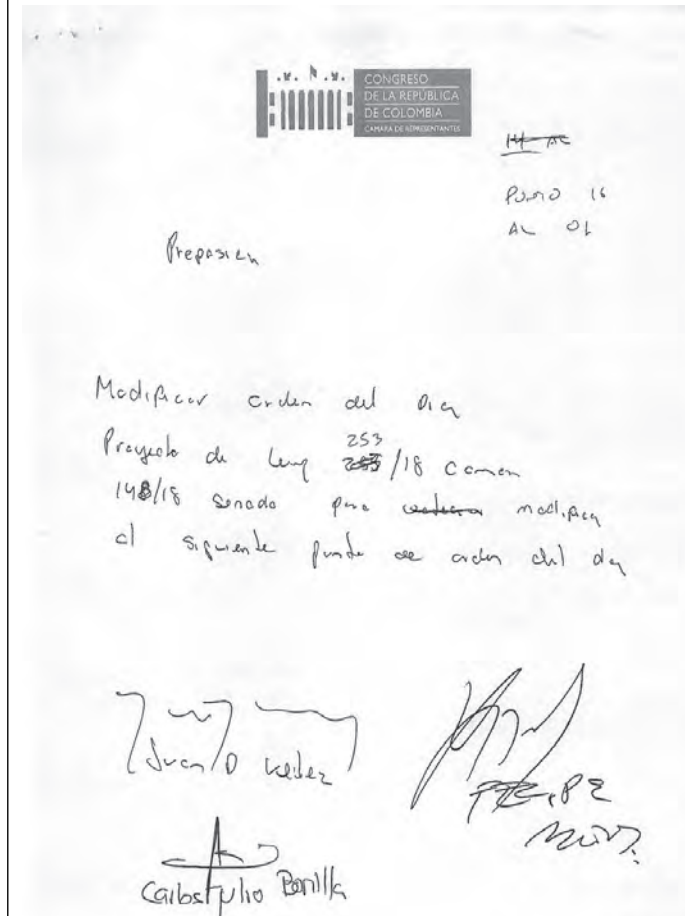 CONGRESO
DE LA REPÚBLICA
DE COLOMBIA
CÁMARA DE REPRESENTANTES
14 AL
Punto 16
AL 01
Proposición
Modificar orden del Dia
Proyecto de Ley 253/18 Camara
148/18 senado para modificar
al siguiente punto de orden del dia
Juan D Velez
FELIPE
Carlos Julio Bonilla